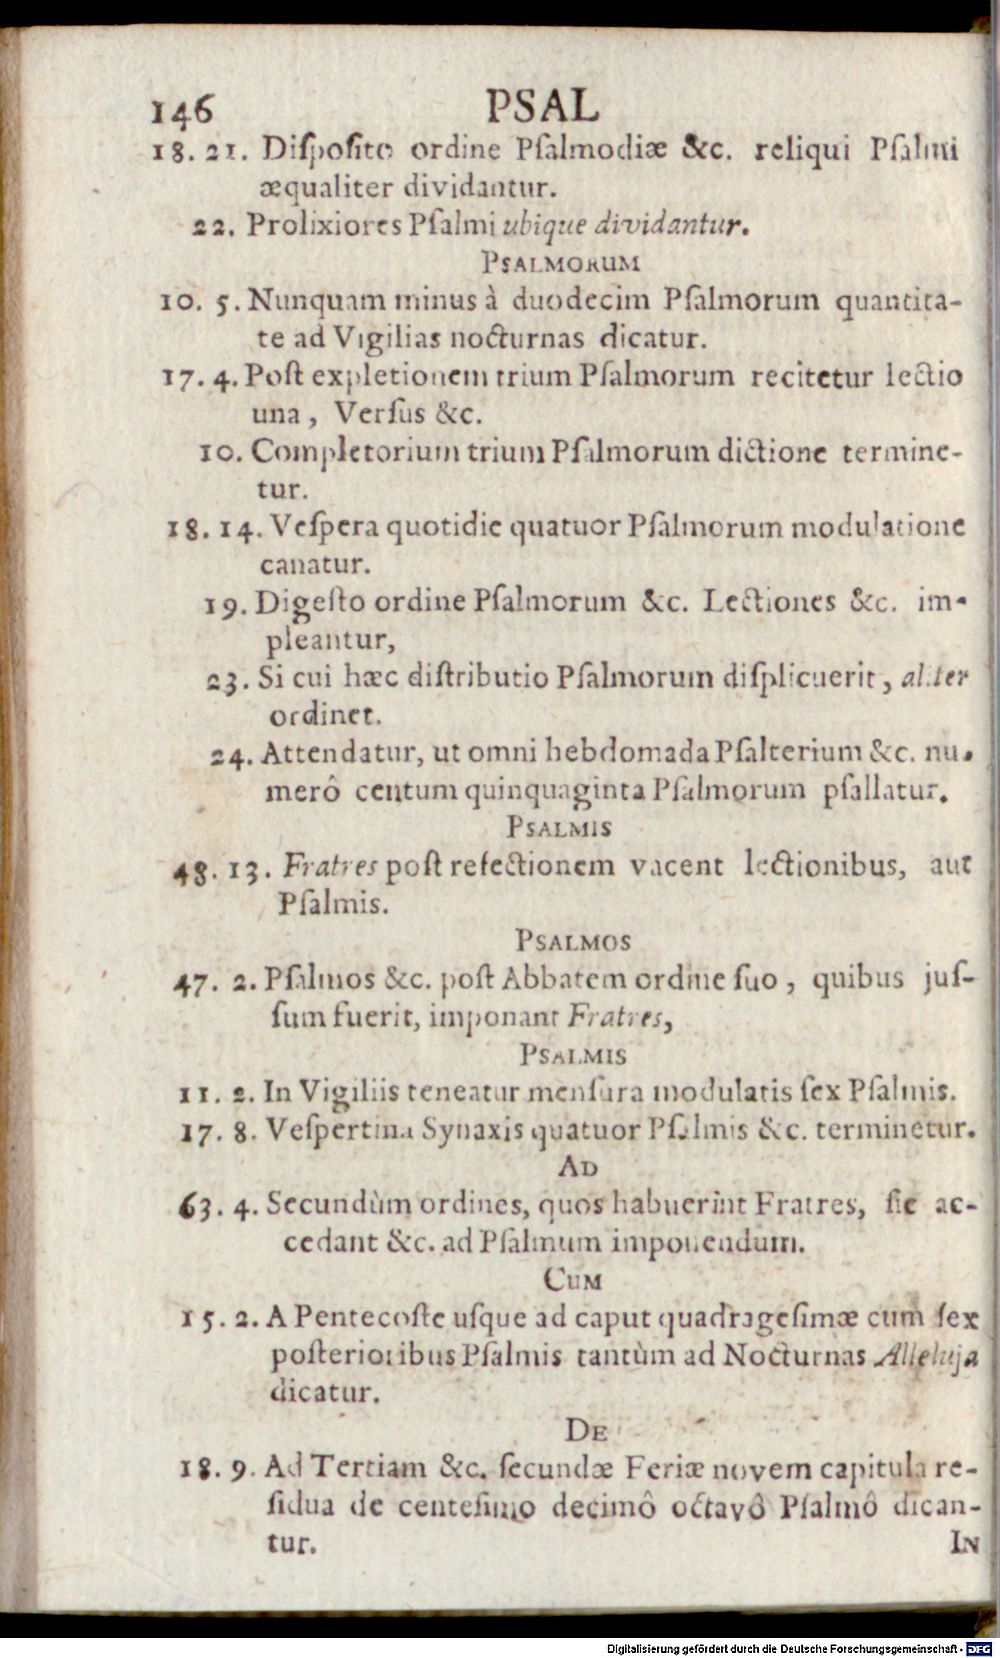 146 PSAL
18. 21. Diſpoſito ordine Pſalmodiæ &c. reliqui Pſalmi
æqualiter dividantur.
22. Prolixiores Pſalmi ubique dividantur.
PSALMORUM
10. 5. Nunquam minus à duodecim Pſalmorum quantita-
te ad Vigilias nocturnas dicatur.
17. 4. Poſt expletionem trium Pſalmorum recitetur lectio
una, Verſus &c.
10. Completorium trium Pſalmorum dictione termine-
tur.
18. 14. Veſpera quotidie quatuor Pſalmorum modulatione
canatur.
19. Digeſto ordine Pſalmorum &c. Lectiones &c. im-
pleantur,
23. Si cui hæc diſtributio Pſalmorum diſplicuerit, aliter
ordinet.
24. Attendatur, ut omni hebdomada Pſalterium &c. nu-
merô centum quinquaginta Pſalmorum pſallatur.
PSALMIS
48. 13. Fratres poſt refectionem vacent lectionibus, aut
Pſalmis.
PSALMOS
47. 2. Pſalmos &c. poſt Abbatem ordine ſuo, quibus juſ-
ſum fuerit, imponant Fratres,
PSALMIS
11. 2. In Vigiliis teneatur menſura modulatis ſex Pſalmis.
17. 8. Veſpertina Synaxis quatuor Pſalmis &c. terminetur.
AD
63. 4. Secundùm ordines, quos habuerint Fratres, ſic ac-
cedant &c. ad Pſalmum imponendum.
CUM
15. 2. A Pentecoſte uſque ad caput quadrageſimæ cum ſex
poſterioribus Pſalmis tantùm ad Nocturnas Alleluja
dicatur.
DE
18. 9. Ad Tertiam &c. ſecundæ Feriæ novem capitula re-
ſidua de centeſimo decimô octavô Pſalmô dican-
tur. IN
Digitalisierung gefördert durch die Deutsche Forschungsgemeinschaft - DFG